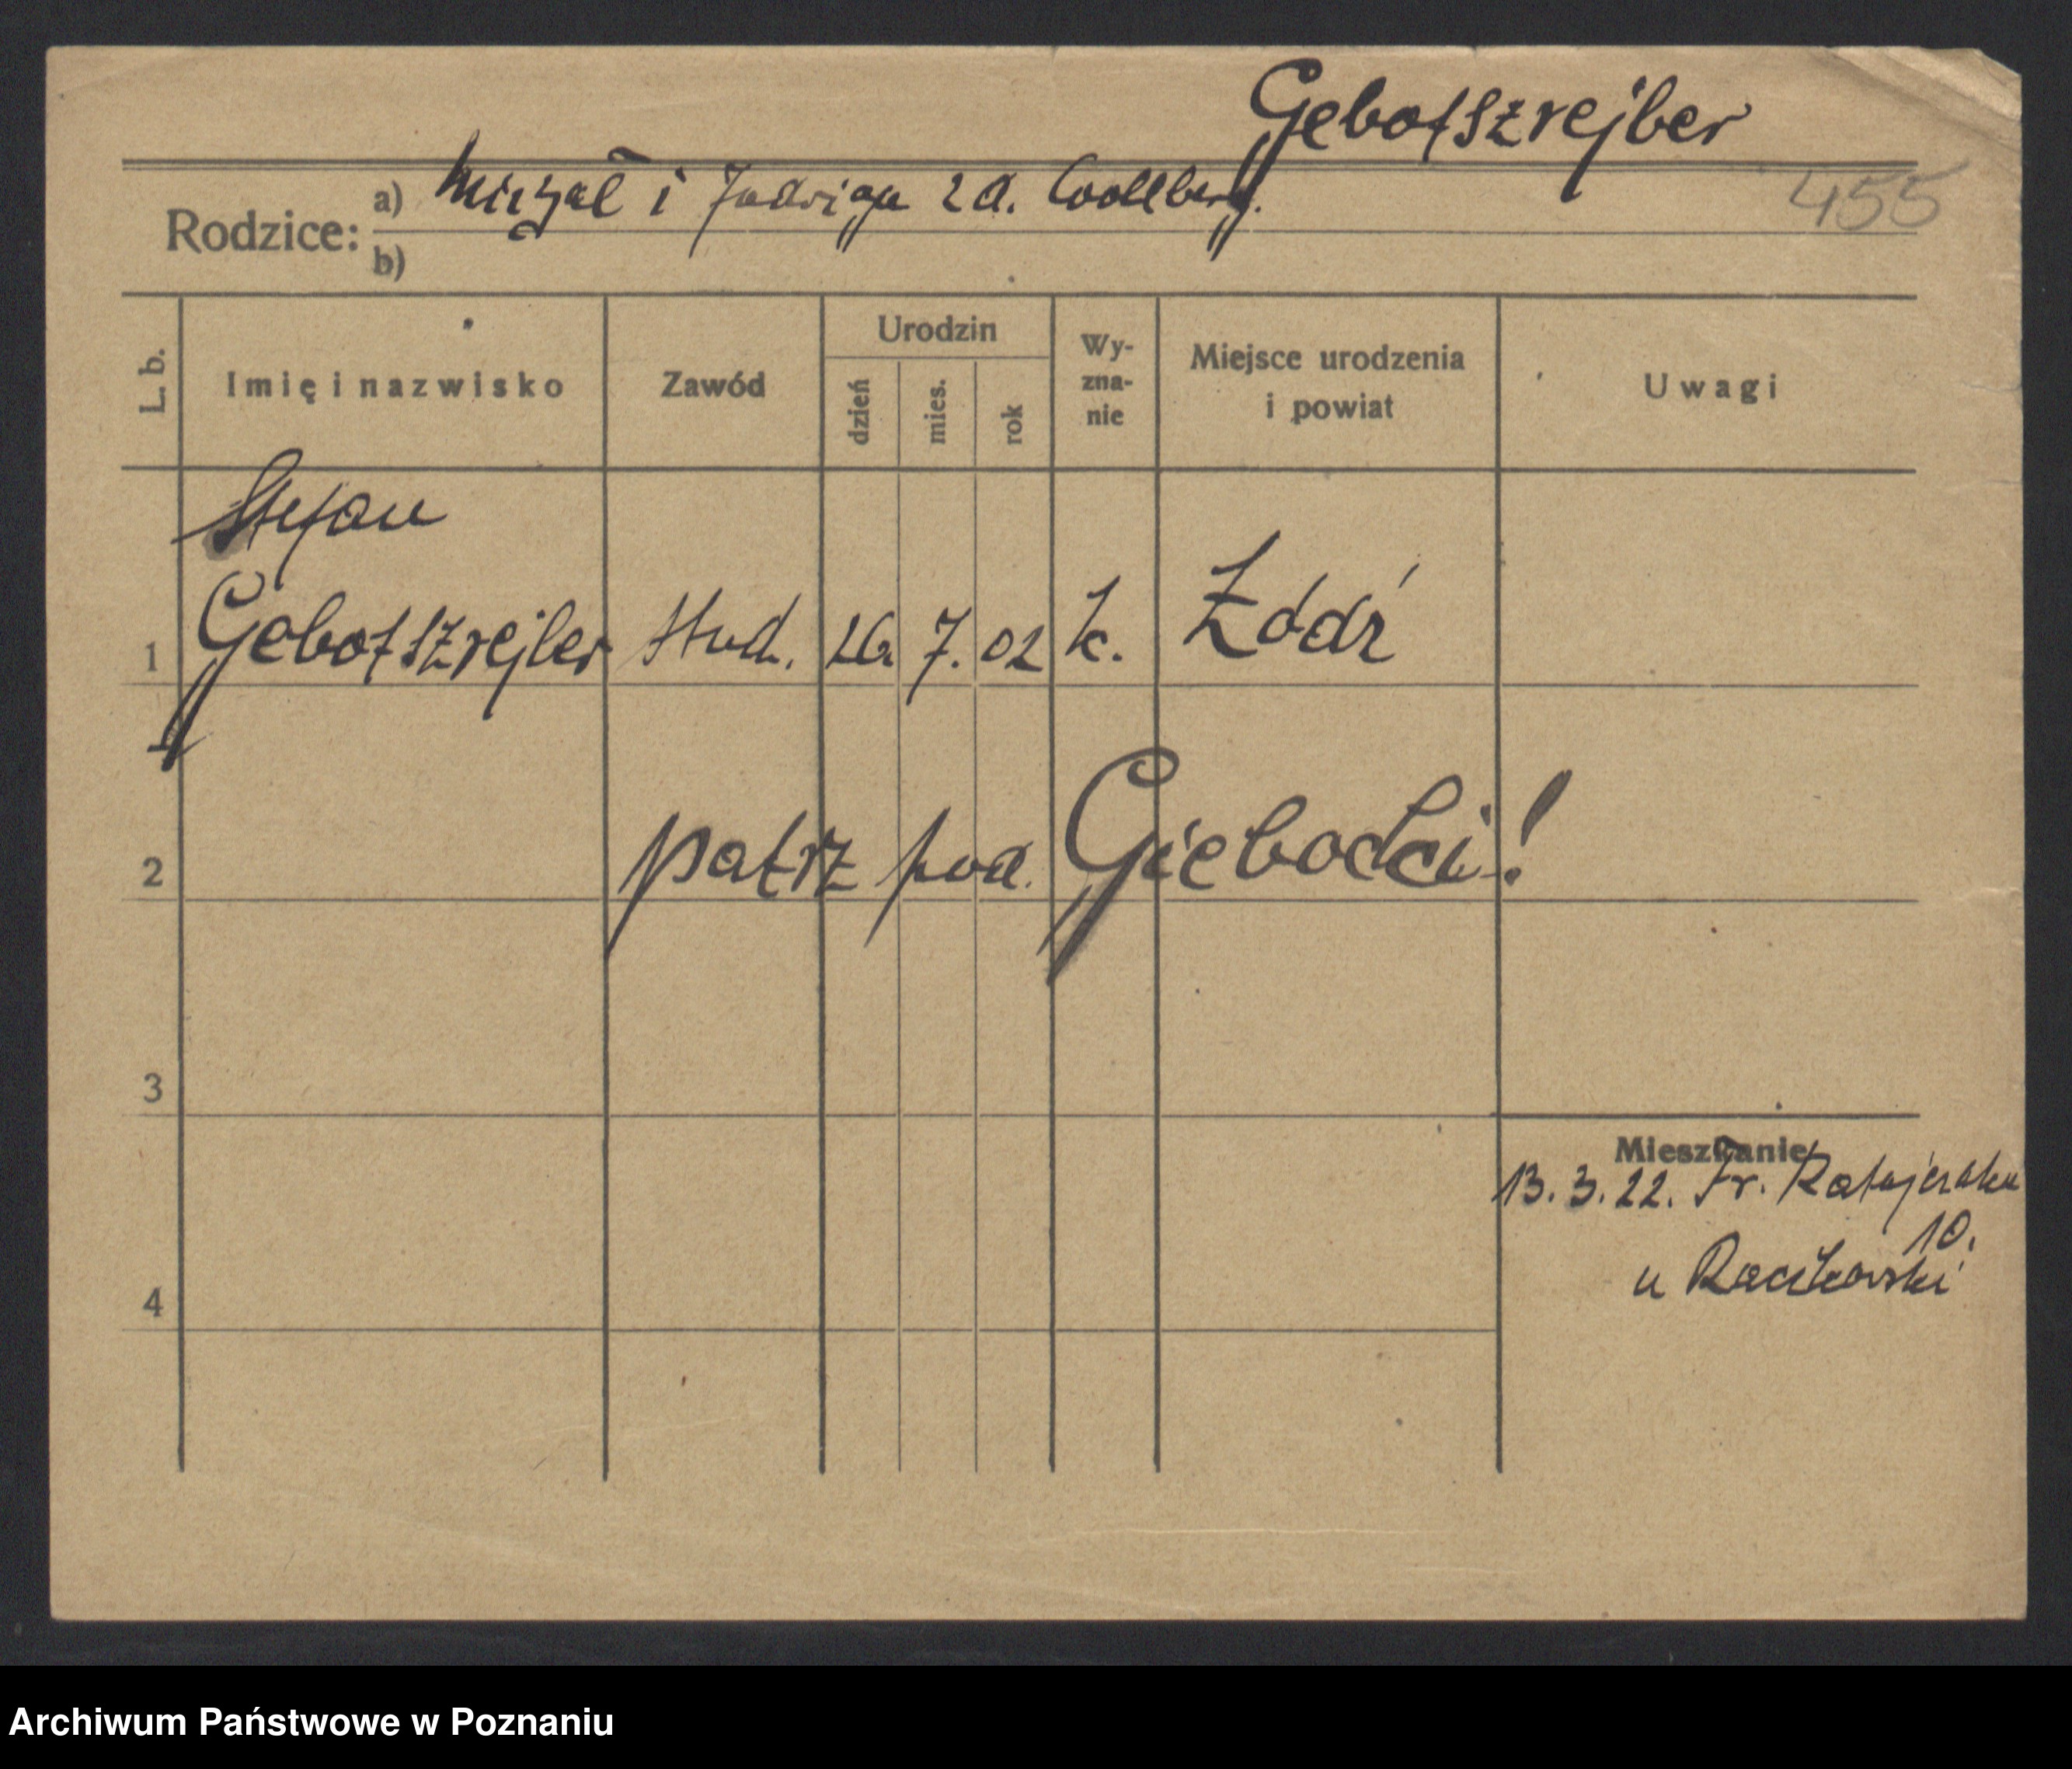 Gebotszrejber
455
Rodzice: a) Michał i Jadwiga zd. Goldberg.
b)
L. b. Imię i nazwisko Zawód Urodzin dzień mies. rok Wyznanie Miejsce urodzenia i powiat Uwagi
Stefan
1 Gebotszrejber stud. 26. 7. 02 k. Łódź
2 patrz pod. Giebocki!
3
Mieszkanie
13. 3. 22. Fr. Ratajczaka
10.
4 u Raczkowski
Archiwum Państwowe w Poznaniu